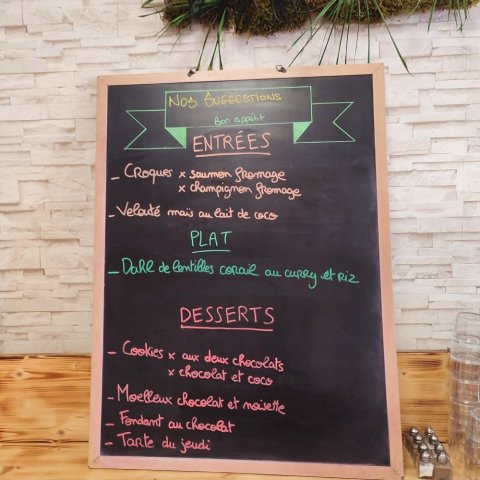 Nos Suggestions
Bon appétit
ENTRÉES
- Croques x saumon fromage
x champignon fromage
- Velouté maïs au lait de coco
PLAT
- Dahl de lentilles corail au curry et riz
DESSERTS
- Cookies x aux deux chocolats
x chocolat et coco
- Moelleux chocolat et noisette
- Fondant au chocolat
- Tarte du jeudi